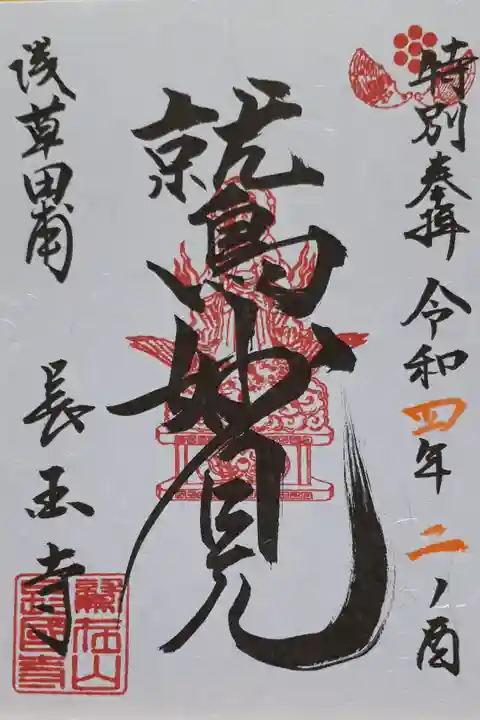 特別奉拝 令和四年 二ノ酉
鷲妙見
浅草田甫
長国寺
鷲在山
長國寺